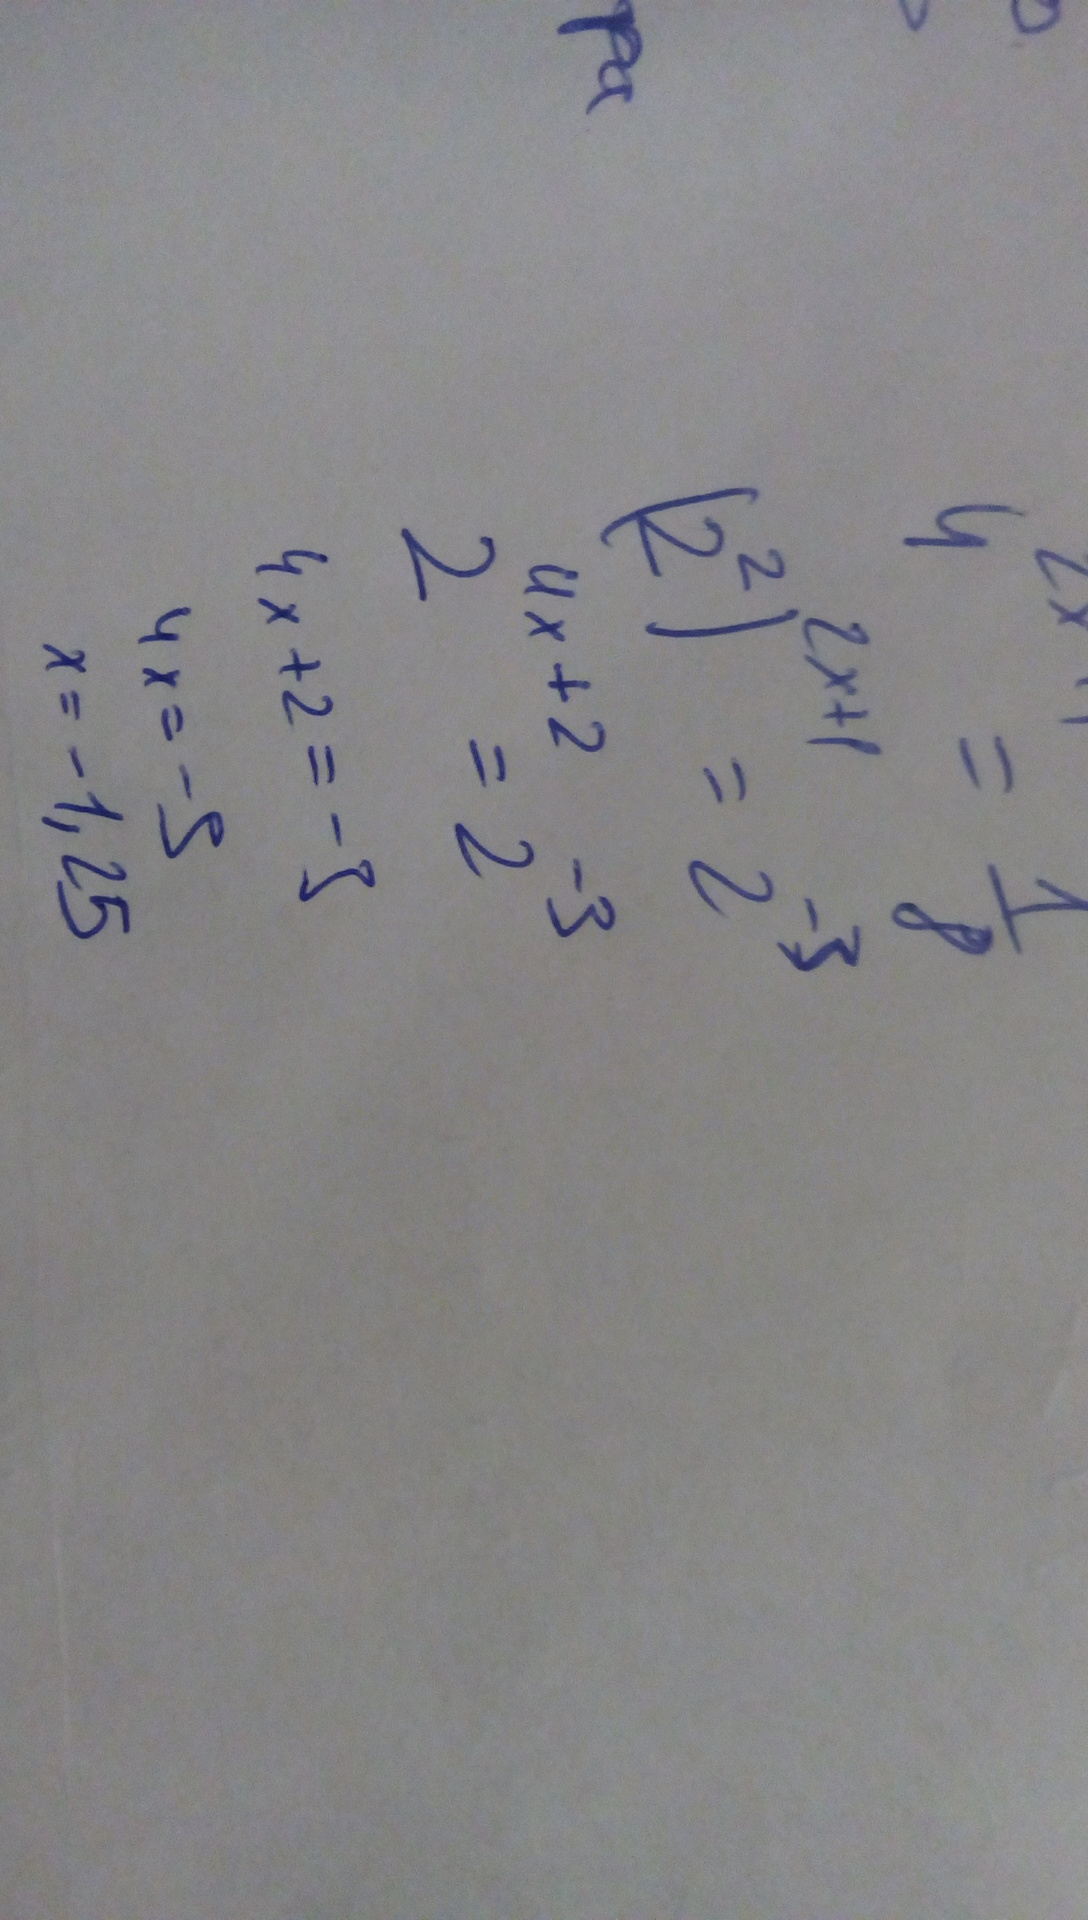 4^{2x+1} = \frac{1}{8}
(2^2)^{2x+1} = 2^{-3}
2^{4x+2} = 2^{-3}
4x+2=-3
4x=-5
x=-1,25